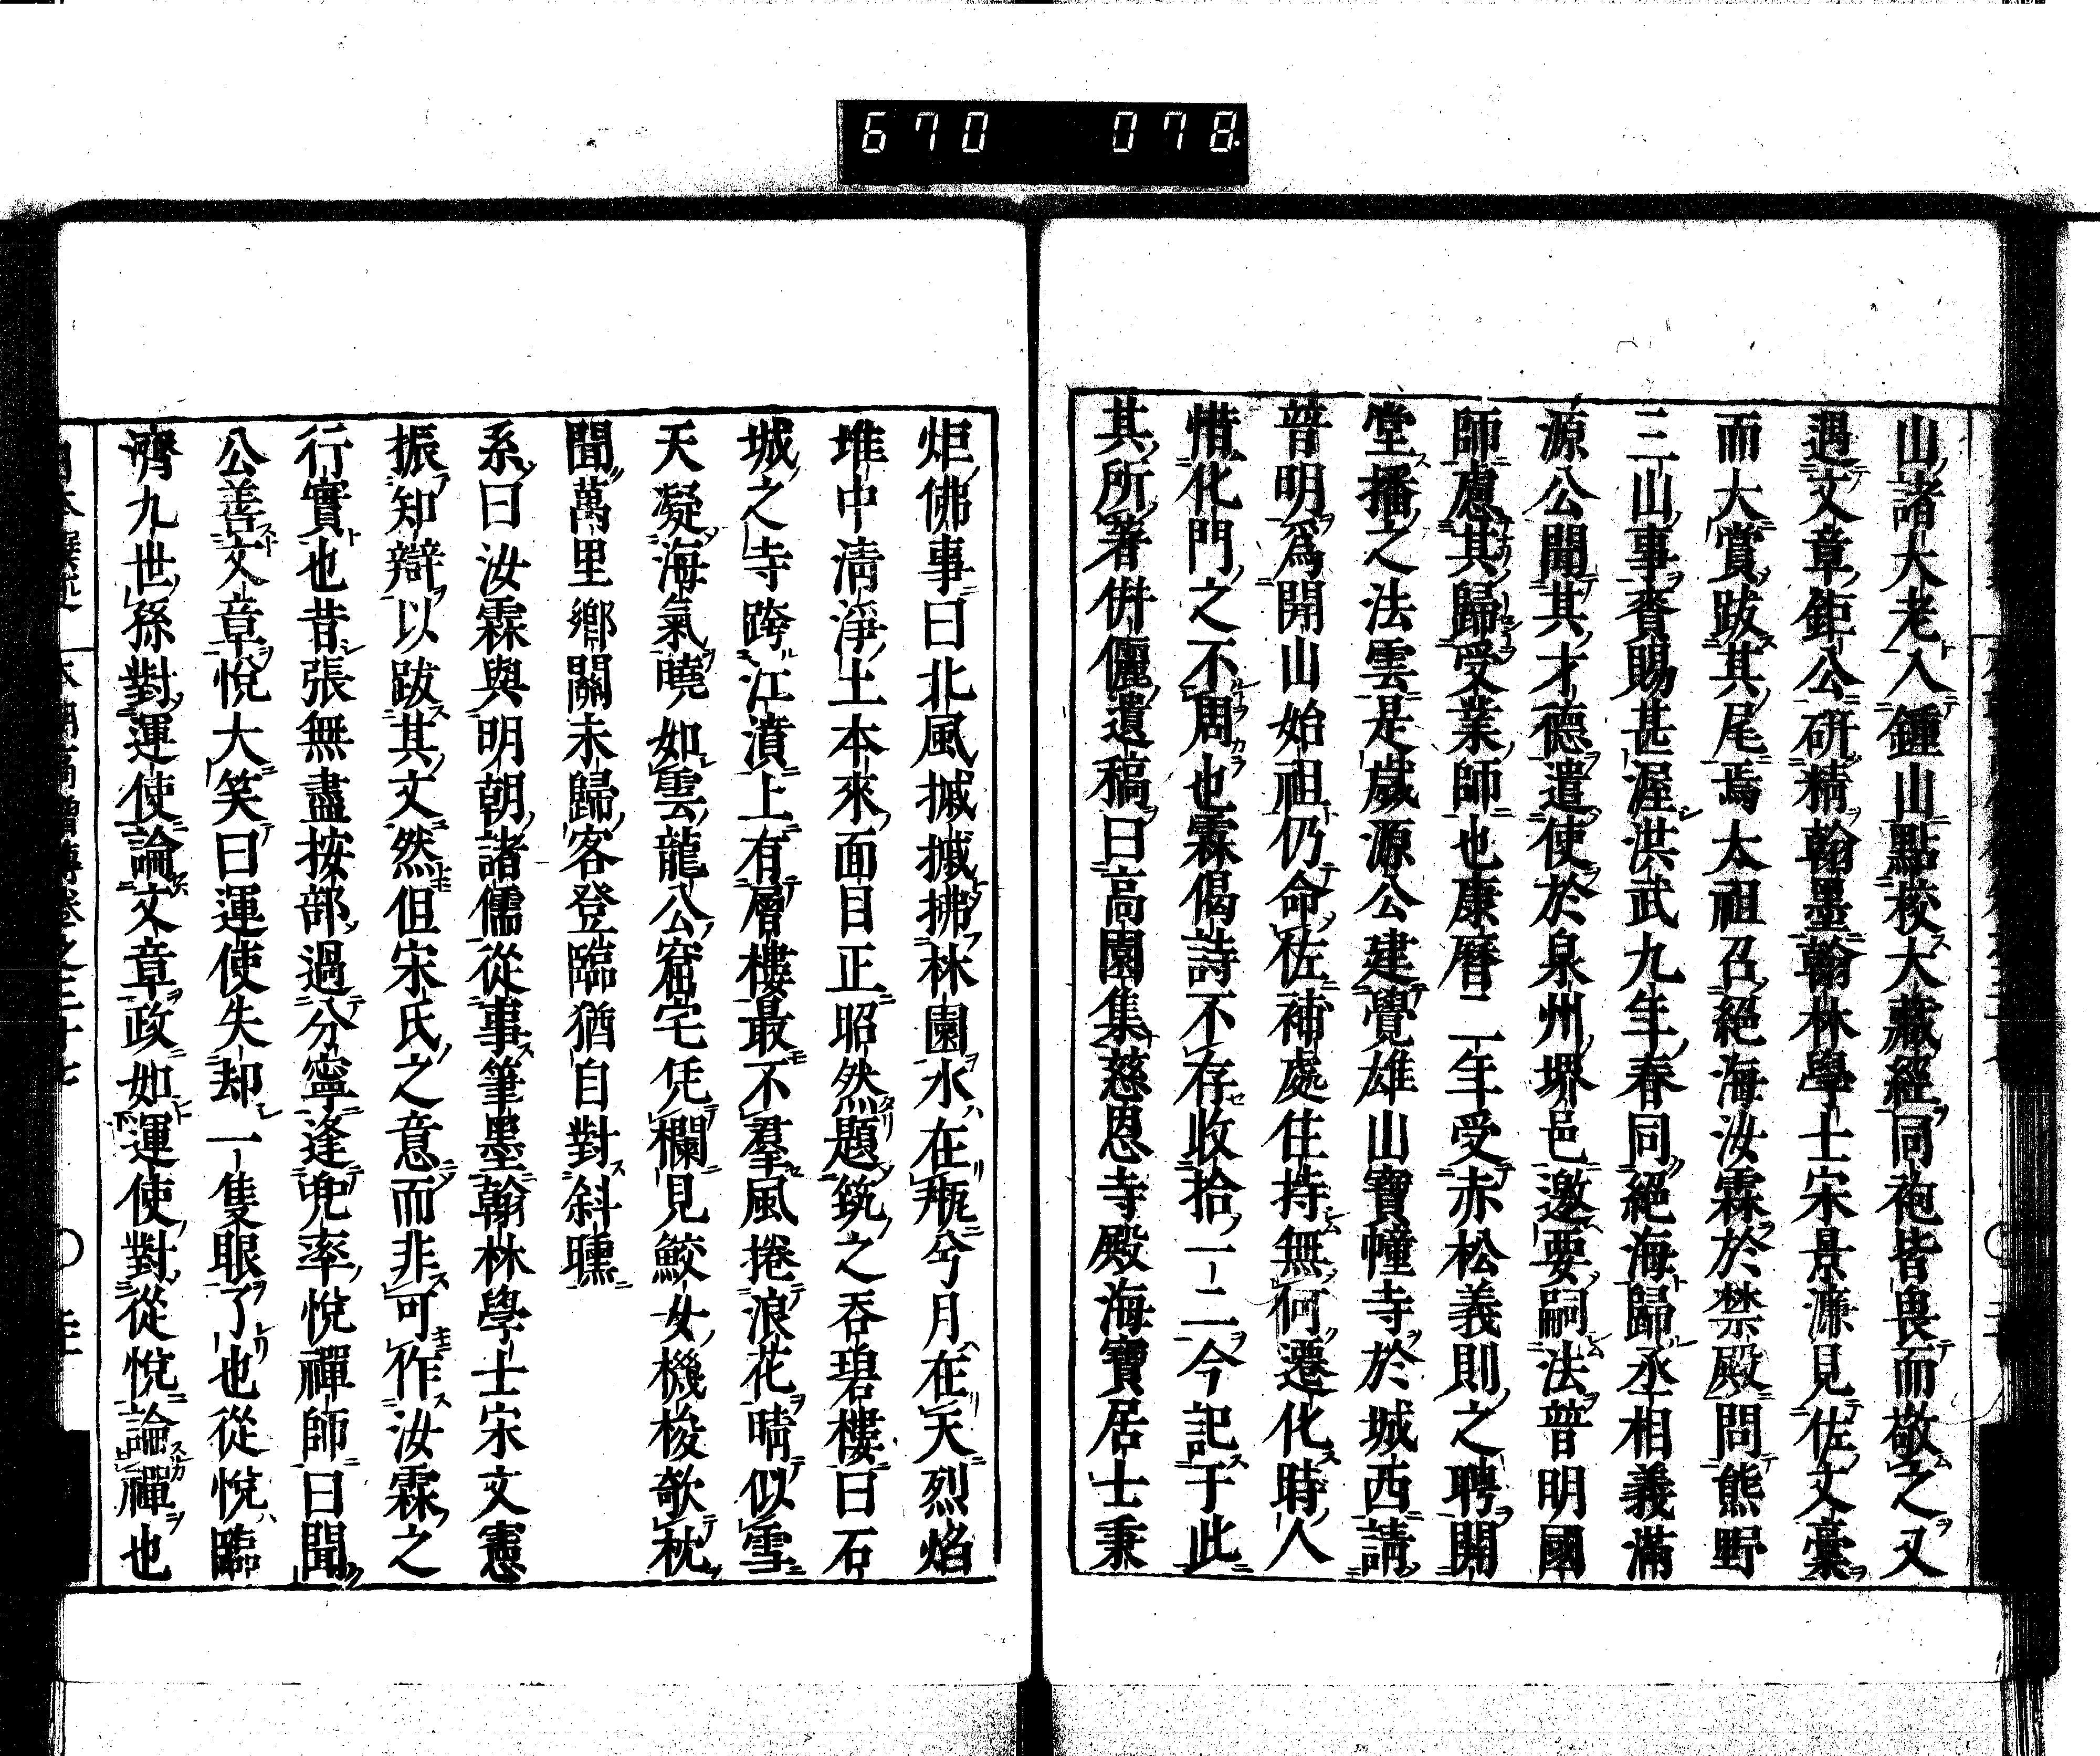 670 078
山諸大老入鍾山點校大藏經同袍皆畏而敬之又
遇文章鉅公研精翰墨翰林學士宋景濂見佐文藁
而大賞跋其尾焉太祖召絕海汝霖於禁殿問熊野
三山事賚賜甚渥洪武九年春同絕海歸丞相義滿
源公聞其才德遣使於泉州堺邑邀要嗣法普明國
師慮其歸受業師也康曆二年受赤松義則之聘開
堂播之法雲是歲源公建覺雄山寶幢寺於城西請
普明爲開山始祖仍命佐補處住持無何遷化時人
惜化門之不周也霖偈詩不存收拾一二今記于此
其所著併儷遺稿曰高園集慈恩寺殿海寶居士秉
炬佛事曰北風摵摵拂林園水在瓶兮月在天烈焰
堆中清淨土本來面目正昭然題筑之吞碧樓曰石
城之寺跨江濆上有層樓最不羣風捲浪花晴似雪
天凝海氣曉如雲龍公窟宅凭欄見鮫女機梭欹枕
聞萬里鄉關未歸客登臨猶自對斜曛
系曰汝霖與明朝諸儒從事筆墨翰林學士宋文憲
振知辯以跋其文然但宋氏之意而非可作汝霖之
行實也昔張無盡按部過分寧逢兜率悅禪師曰聞
公善文章悅大笑曰運使失却一隻眼了也從悅臨
濟九世孫對運使論文章政如運使對從悅論禪也